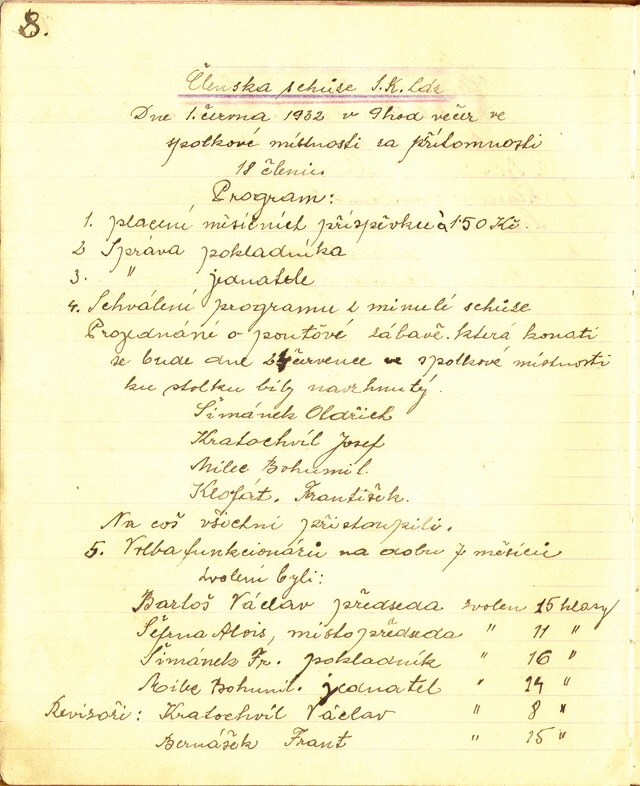 8.
Členska schůse S.K. Lds
Dne 1. června 1932 v 9 hod večer ve
spolkové místnosti za přítomnosti
18 členů.
Program:
1. placení měsíčních příspěvků à 1·50 Kč.
2 Správa pokladníka
3. " jednatele
4. Schválení programu z minulí schůse
Projednáné o pouťové zábavě. která konati
se bude dne 24 července ve spolkové místnosti
ku stolku bíly navrhnutý.
Šimánek Oldřich
Kratochvíl Josef
Milec Bohumil.
Klofát. František.
Na což všichni přistoupili.
5. Volba funkcionářů na dobu 7 měsíců
zvolení byli:
Bartoš Václav předseda zvolen 15 hlasy
Šefrna Alois, místopředseda " 11 "
Šimánek Fr. pokladník " 16 "
Milec Bohumil. jednatel " 14 "
Revizoři: Kratochvíl Václav " 8 "
Bernášek Frant " 15 "